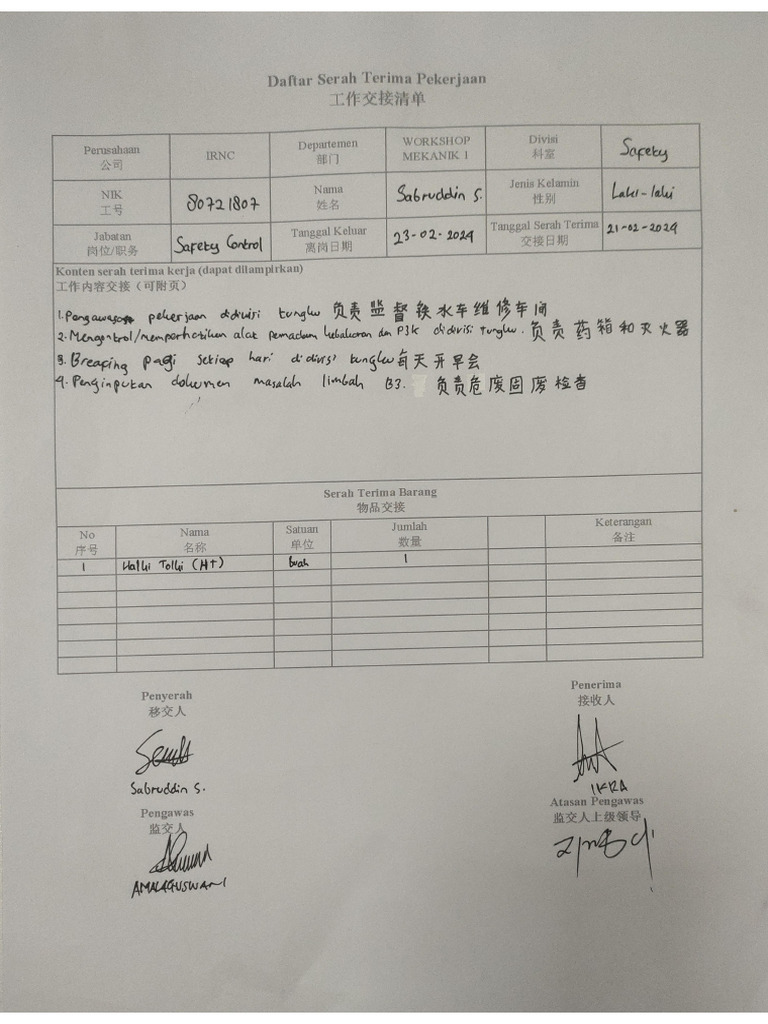 Daftar Serah Terima Pekerjaan
工作交接清单
Perusahaan 公司 IRNC Departemen 部门 WORKSHOP MEKANIK 1 Divisi 科室 Safety
NIK 工号 80721807 Nama 姓名 Sabruddin S. Jenis Kelamin 性别 Laki-laki
Jabatan 岗位/职务 Safety Control Tanggal Keluar 离岗日期 23-02-2024 Tanggal Serah Terima 交接日期 21-02-2024
Konten serah terima kerja (dapat dilampirkan)
工作内容交接（可附页）
1. Pengawasan pekerjaan didivisi tungku 负责监督铁水车维修车间
2. Mengontrol/memperhatikan alat pemadam kebakaran dan P3K didivisi tungku. 负责药箱和灭火器
3. Breafing pagi setiap hari didivisi tungku 每天开早会
4. Penginputan dokumen masalah limbah B3. 负责危废固废检查
Serah Terima Barang
物品交接
No 序号 Nama 名称 Satuan 单位 Jumlah 数量 Keterangan 备注
1 Halki Tolki (HT) buah 1
Penyerah
移交人
Sabruddin S.
Penerima
接收人
IKRA
Pengawas
监交人
AMALAGUSWANI
Atasan Pengawas
监交人上级领导